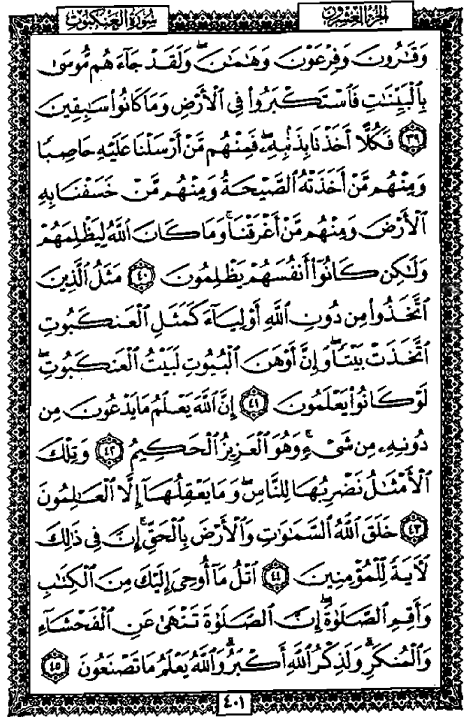 سُورَةُ العَنكَبُوتِ الجُزءُ العِشْرُونَ
وَقَٰرُونَ وَفِرْعَوْنَ وَهَٰمَٰنَ ۖ وَلَقَدْ جَآءَهُم مُّوسَىٰ
بِٱلْبَيِّنَٰتِ فَٱسْتَكْبَرُوا۟ فِى ٱلْأَرْضِ وَمَا كَانُوا۟ سَٰبِقِينَ
﴿٣٩﴾ فَكُلًّا أَخَذْنَا بِذَنۢبِهِۦ ۖ فَمِنْهُم مَّنْ أَرْسَلْنَا عَلَيْهِ حَاصِبًا
وَمِنْهُم مَّنْ أَخَذَتْهُ ٱلصَّيْحَةُ وَمِنْهُم مَّنْ خَسَفْنَا بِهِ
ٱلْأَرْضَ وَمِنْهُم مَّنْ أَغْرَقْنَا ۚ وَمَا كَانَ ٱللَّهُ لِيَظْلِمَهُمْ
وَلَٰكِن كَانُوٓا۟ أَنفُسَهُمْ يَظْلِمُونَ ﴿٤٠﴾ مَثَلُ ٱلَّذِينَ
ٱتَّخَذُوا۟ مِن دُونِ ٱللَّهِ أَوْلِيَآءَ كَمَثَلِ ٱلْعَنكَبُوتِ
ٱتَّخَذَتْ بَيْتًا ۖ وَإِنَّ أَوْهَنَ ٱلْبُيُوتِ لَبَيْتُ ٱلْعَنكَبُوتِ ۖ
لَوْ كَانُوا۟ يَعْلَمُونَ ﴿٤١﴾ إِنَّ ٱللَّهَ يَعْلَمُ مَا يَدْعُونَ مِن
دُونِهِۦ مِن شَىْءٍ ۚ وَهُوَ ٱلْعَزِيزُ ٱلْحَكِيمُ ﴿٤٢﴾ وَتِلْكَ
ٱلْأَمْثَٰلُ نَضْرِبُهَا لِلنَّاسِ ۖ وَمَا يَعْقِلُهَآ إِلَّا ٱلْعَٰلِمُونَ
﴿٤٣﴾ خَلَقَ ٱللَّهُ ٱلسَّمَٰوَٰتِ وَٱلْأَرْضَ بِٱلْحَقِّ ۚ إِنَّ فِى ذَٰلِكَ
لَءَايَةً لِّلْمُؤْمِنِينَ ﴿٤٤﴾ ٱتْلُ مَآ أُوحِىَ إِلَيْكَ مِنَ ٱلْكِتَٰبِ
وَأَقِمِ ٱلصَّلَوٰةَ ۖ إِنَّ ٱلصَّلَوٰةَ تَنْهَىٰ عَنِ ٱلْفَحْشَآءِ
وَٱلْمُنكَرِ ۗ وَلَذِكْرُ ٱللَّهِ أَكْبَرُ ۗ وَٱللَّهُ يَعْلَمُ مَا تَصْنَعُونَ ﴿٤٥﴾
٤٠١